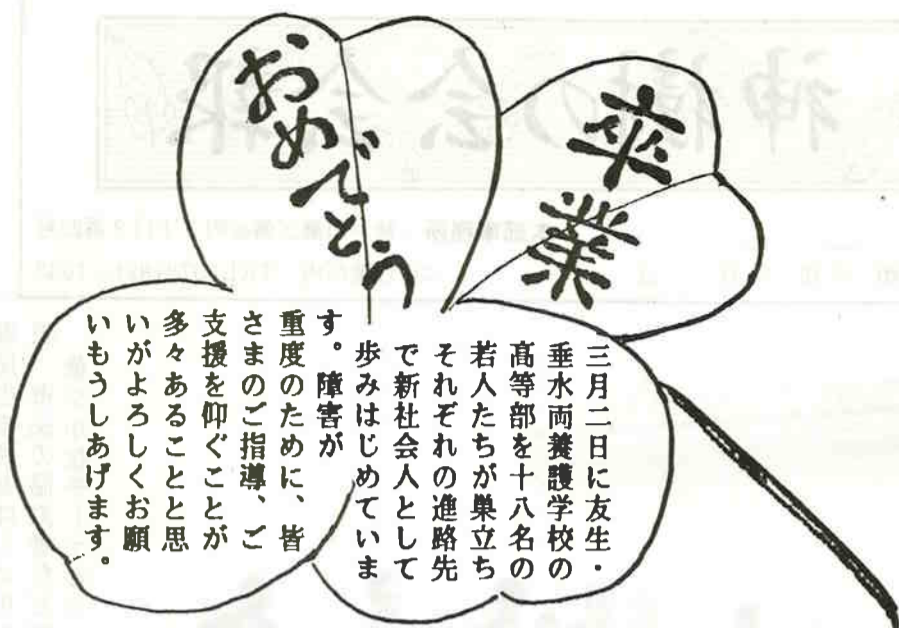 卒業
おめでとう
三月二日に友生・
垂水両養護学校の
高等部を十八名の
若人たちが巣立ち
それぞれの進路先
で新社会人として
歩みはじめていま
す。障害が
重度のために、皆
さまのご指導、ご
支援を仰ぐことが
多々あることと思
いがよろしくお願
いもうしあげます。